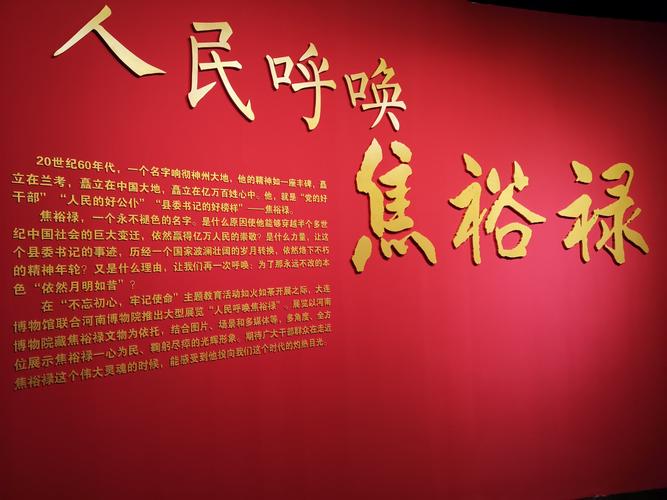 人民呼唤
焦裕禄
20世纪60年代，一个名字响彻神州大地，他的精神如一座丰碑，矗
立在兰考，矗立在中国大地，矗立在亿万百姓心中。他，就是“党的好
干部”“人民的好公仆”“县委书记的好榜样”——焦裕禄。
焦裕禄，一个永不褪色的名字。是什么原因使他能够穿越半个多世
纪中国社会的巨大变迁，依然赢得亿万人民的崇敬？是什么力量，让这
个县委书记的事迹，历经一个国家波澜壮阔的岁月转换，依然烙下不朽
的精神年轮？又是什么理由，让我们再一次呼唤：为了那永远不改的本
色“依然月明如昔”？
在“不忘初心，牢记使命”主题教育活动如火如荼开展之际，大连
博物馆联合河南博物院推出大型展览“人民呼唤焦裕禄”。展览以河南
博物院藏焦裕禄文物为依托，结合图片、场景和多媒体等，多角度、全方
位展示焦裕禄一心为民、鞠躬尽瘁的光辉形象。期待广大干部群众在走近
焦裕禄这个伟大灵魂的时候，能感受到他投向我们这个时代的灼热目光。